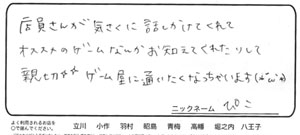 店員さんが気さくに話しかけてくれて
オススメのゲームなんかお知えてくれたりして
親切なゲーム屋に通いたくなっちゃいます(^o^)
ニックネーム ぴこ
よく利用されるお店を
○で選んでください。
立川 小作 羽村 昭島 青梅 高幡 堀之内 八王子